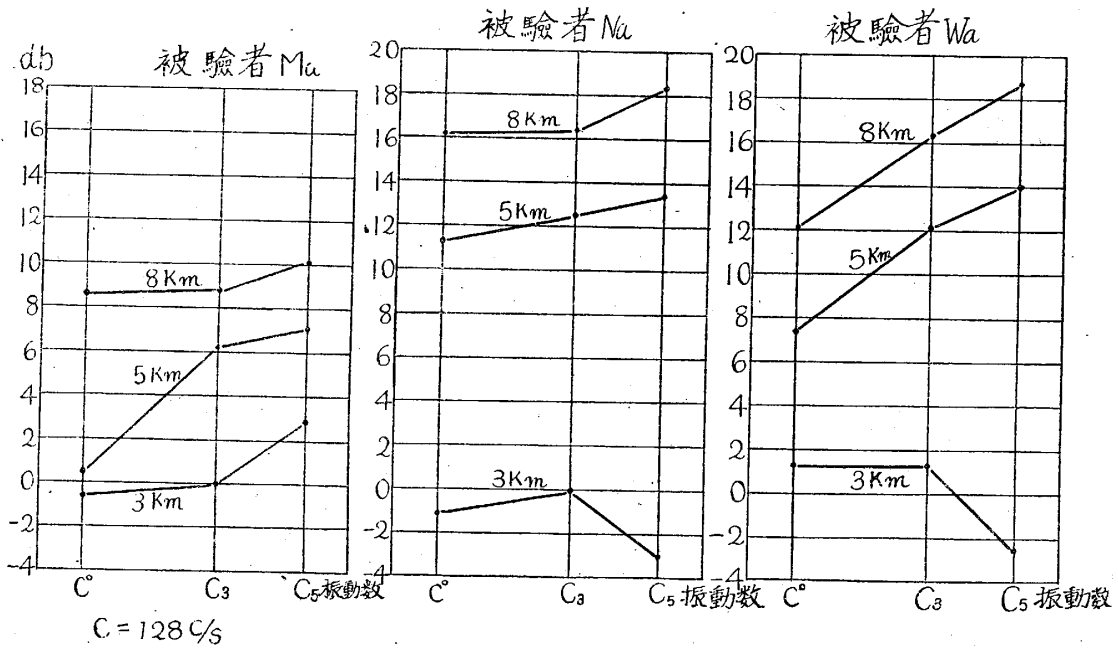 db
被驗者 Ma
18
16
14
12
10
8
6
4
2
0
-2
-4
8Km
5Km
3Km
C°
C₃
C₅振動数
C = 128 C/S
被驗者 Na
20
18
16
14
12
10
8
6
4
2
0
-2
-4
8Km
5Km
3Km
C°
C₃
C₅振動数
被驗者 Wa
20
18
16
14
12
10
8
6
4
2
0
-2
-4
8Km
5Km
3Km
C°
C₃
C₅振動数